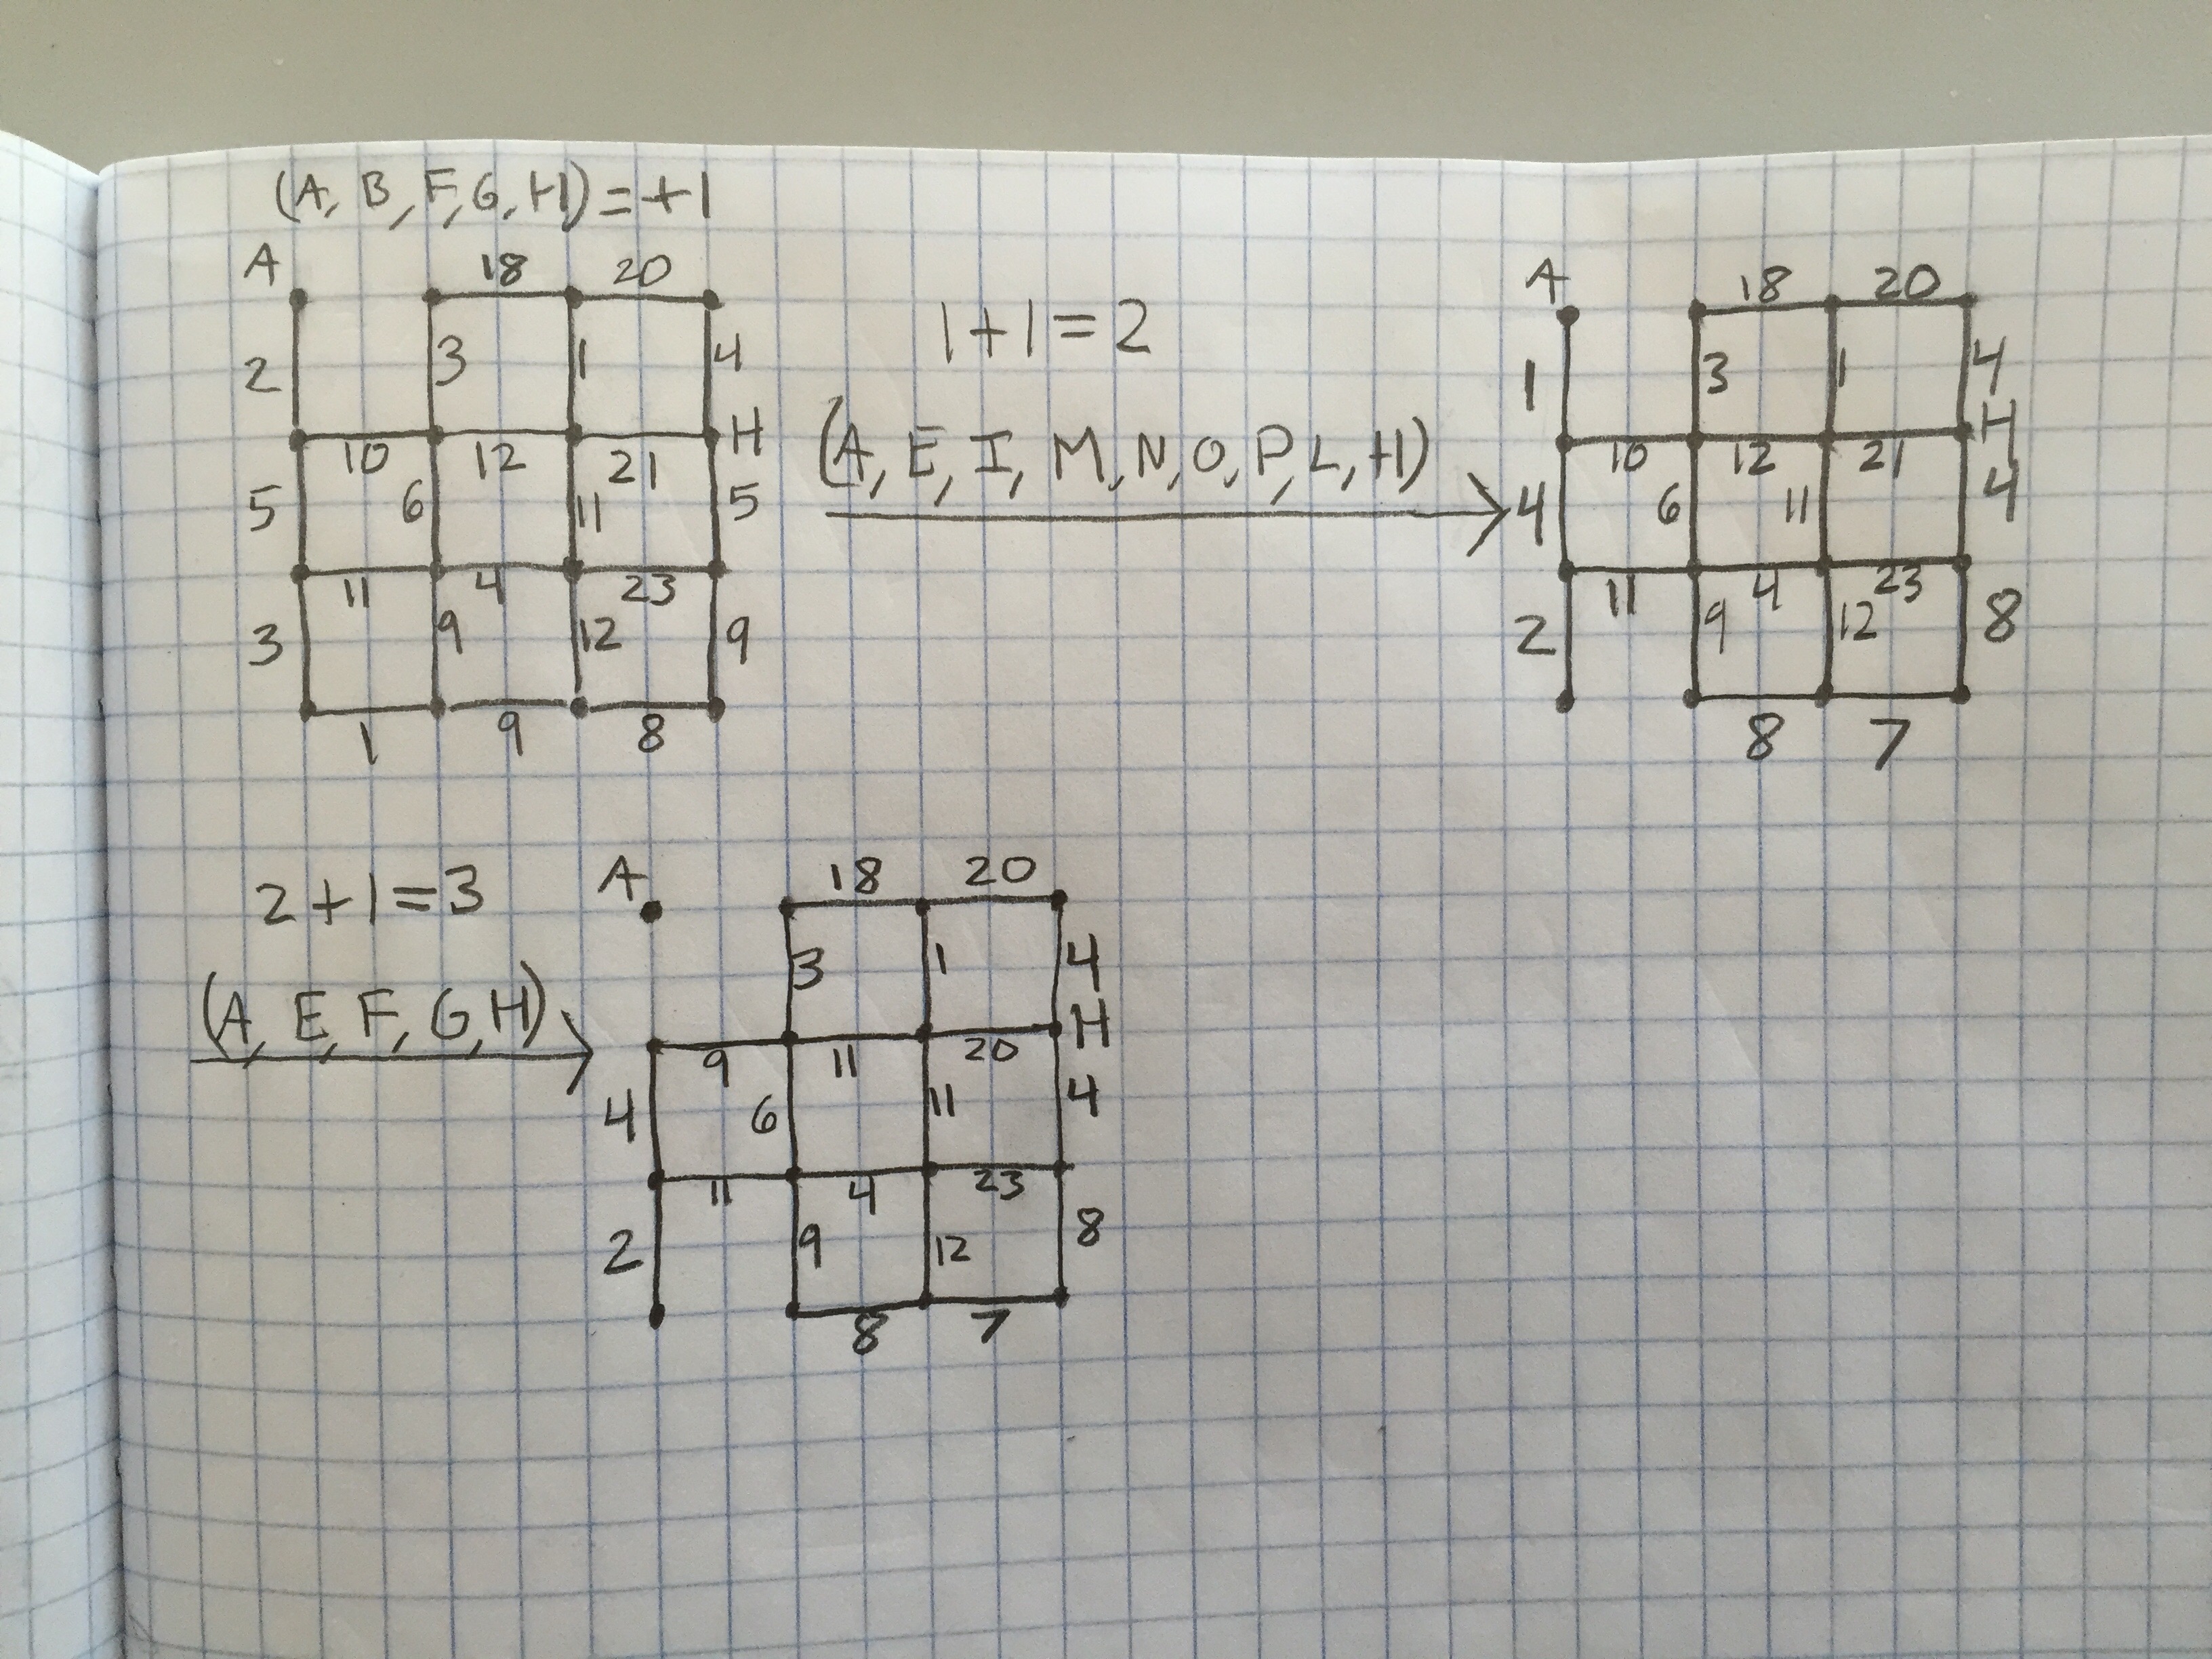 (A, B, F, G, H) = +1
A 18 20
2 3 1 4
10 12 21 H
5 6 11 5
11 4 23
3 9 12 9
1 9 8
1+1=2
(A, E, I, M, N, O, P, L, H)
A 18 20
1 3 1 4
10 12 21 H
4 6 11 4
11 4 23
2 9 12 8
8 7
2+1=3
(A, E, F, G, H)
A 18 20
3 1 4
9 11 20 H
4 6 11 4
11 4 23
2 9 12 8
8 7